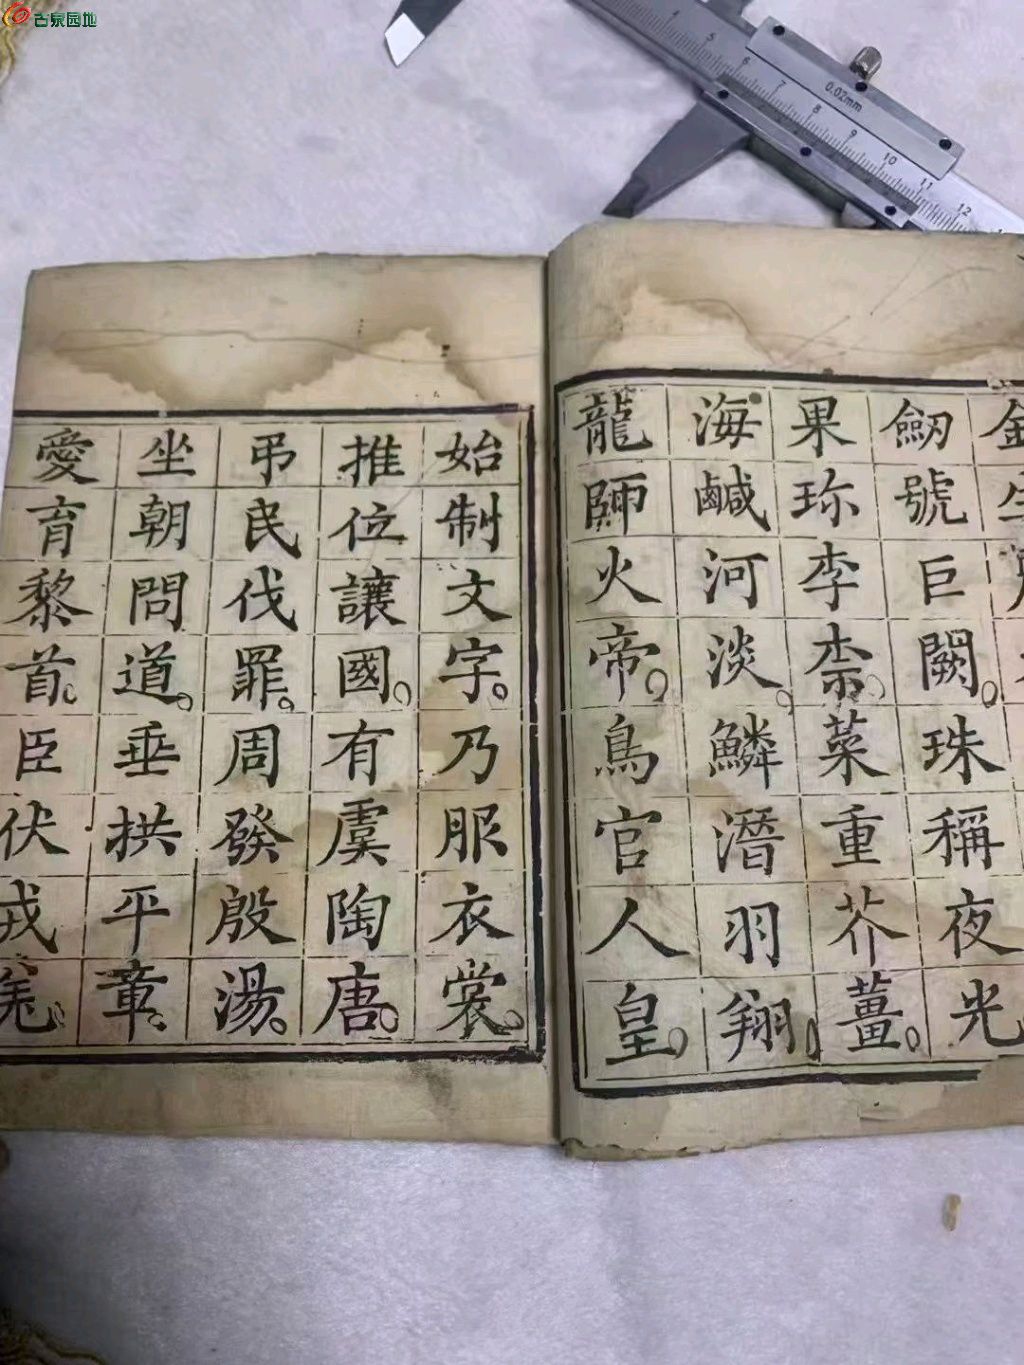 古泉园地
4 5 6 7 8 9 10 11 12
0.02mm
金生
劒號巨闕。珠稱夜光
果珎李柰。菜重芥薑。
海鹹河淡。鱗潛羽翔。
龍師火帝。鳥官人皇。
始制文字。乃服衣裳。
推位讓國。有虞陶唐。
弔民伐罪。周發殷湯。
坐朝問道。垂拱平章。
愛育黎首。臣伏戎羌。